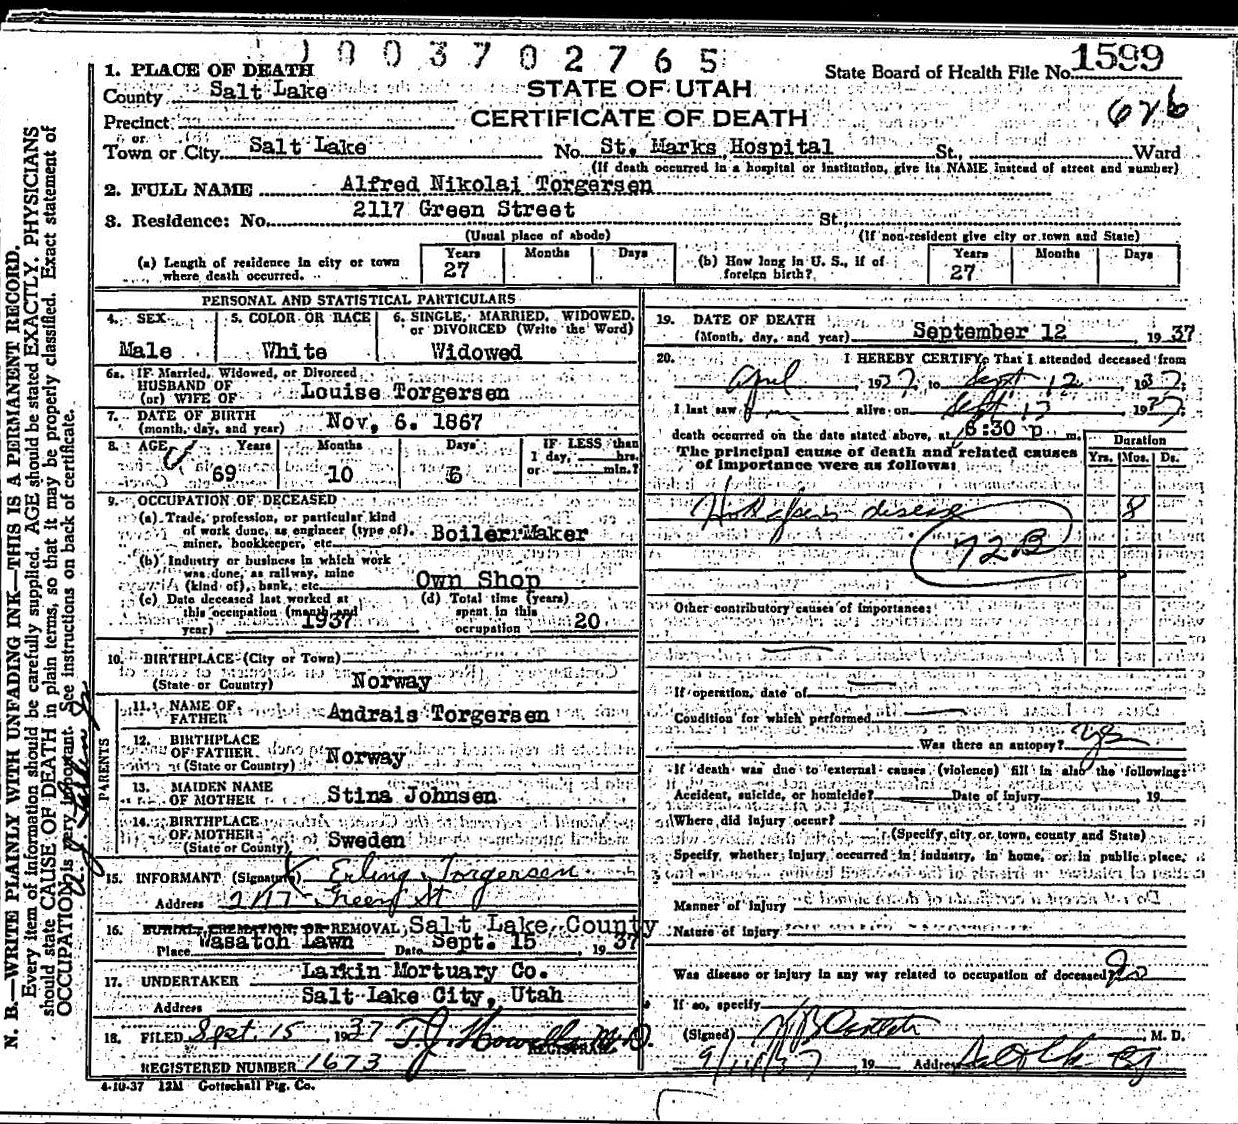 1003702765
State Board of Health File No. 1599
1. PLACE OF DEATH
County Salt Lake
STATE OF UTAH
CERTIFICATE OF DEATH
Precinct
or
Town or City Salt Lake No. St. Marks Hospital St., Ward
(If death occurred in a hospital or institution, give its NAME instead of street and number)
2. FULL NAME Alfred Nikolai Torgersen
3. Residence: No. 2117 Green Street St.
(Usual place of abode) (If non-resident give city or town and State)
(a) Length of residence in city or town where death occurred. Years 27 Months Days
(b) How long in U. S., if of foreign birth? Years 27 Months Days
PERSONAL AND STATISTICAL PARTICULARS
4. SEX Male
5. COLOR OR RACE White
6. SINGLE, MARRIED, WIDOWED, or DIVORCED (Write the Word) Widowed
6a. IF Married, Widowed, or Divorced
HUSBAND OF
(or) WIFE OF Louise Torgersen
7. DATE OF BIRTH
(month, day, and year) Nov, 6. 1867
8. AGE Years 69 Months 10 Days 6 IF LESS than 1 day, hrs. or min.?
9. OCCUPATION OF DECEASED
(a) Trade, profession, or particular kind
of work done, as engineer (type of),
miner, bookkeeper, etc. Boiler Maker
(b) Industry or business in which work
was done, as railway, mine
(kind of), bank, etc. Own Shop
(c) Date deceased last worked at
this occupation (month and
year) 1937
(d) Total time (years)
spent in this
occupation 20
10. BIRTHPLACE (City or Town)
(State or Country) Norway
PARENTS
11. NAME OF
FATHER Andrais Torgersen
12. BIRTHPLACE
OF FATHER
(State or Country) Norway
13. MAIDEN NAME
OF MOTHER Stina Johnsen
14. BIRTHPLACE
OF MOTHER
(State or County) Sweden
15. INFORMANT (Signature) Erling Torgersen
Address 2117 Green St
16. BURIAL, CREMATION, OR REMOVAL, Salt Lake County
Place Wasatch Lawn Date Sept. 15, 1937
17. UNDERTAKER Larkin Mortuary Co.
Address Salt Lake City, Utah
18. FILED Sept. 15 1937 T. J. Howells M.D.
REGISTRAR
REGISTERED NUMBER 1673
4-10-37 12M Gottschall Ptg. Co.
19. DATE OF DEATH
(Month, day, and year) September 12, 1937
20. I HEREBY CERTIFY, That I attended deceased from
April, 1937, to Sept 12, 1937;
I last saw alive on Sept 12 1937;
death occurred on the date stated above, at 6:30 p m.
The principal cause of death and related causes
of importance were as follows:
Duration
Yrs. Mos. Ds.
Hodgkin's disease 8
72B
Other contributory causes of importance:
If operation, date of
Condition for which performed
Was there an autopsy? yes
If death was due to external causes (violence) fill in also the following:
Accident, suicide, or homicide? Date of injury, 19
Where did injury occur?
(Specify city or town, county and State)
Specify whether injury occurred in industry, in home, or in public place,
Manner of injury
Nature of injury
Was disease or injury in any way related to occupation of deceased? No
If so, specify
(Signed) M. D.
9/14/37 19 Address Salt Lake City
N. B.—WRITE PLAINLY WITH UNFADING INK—THIS IS A PERMANENT RECORD.
Every item of information should be carefully supplied. AGE should be stated EXACTLY. PHYSICIANS
should state CAUSE OF DEATH in plain terms, so that it may be properly classified. Exact statement of
OCCUPATION is very important. See instructions on back of certificate.